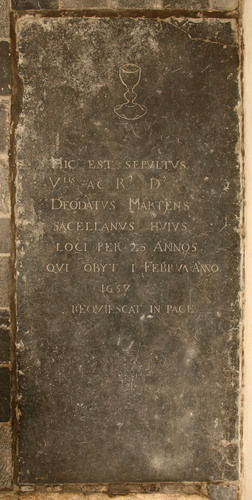 HIC EST SEPVLTVS
Vlis AC Rs Ds
DEODATVS MARTENS
SACELLANVS HVIVS
LOCI PER 25 ANNOS
QVI OBYT 1 FEBRVA ANNO
1657
REQVIESCAT IN PACE